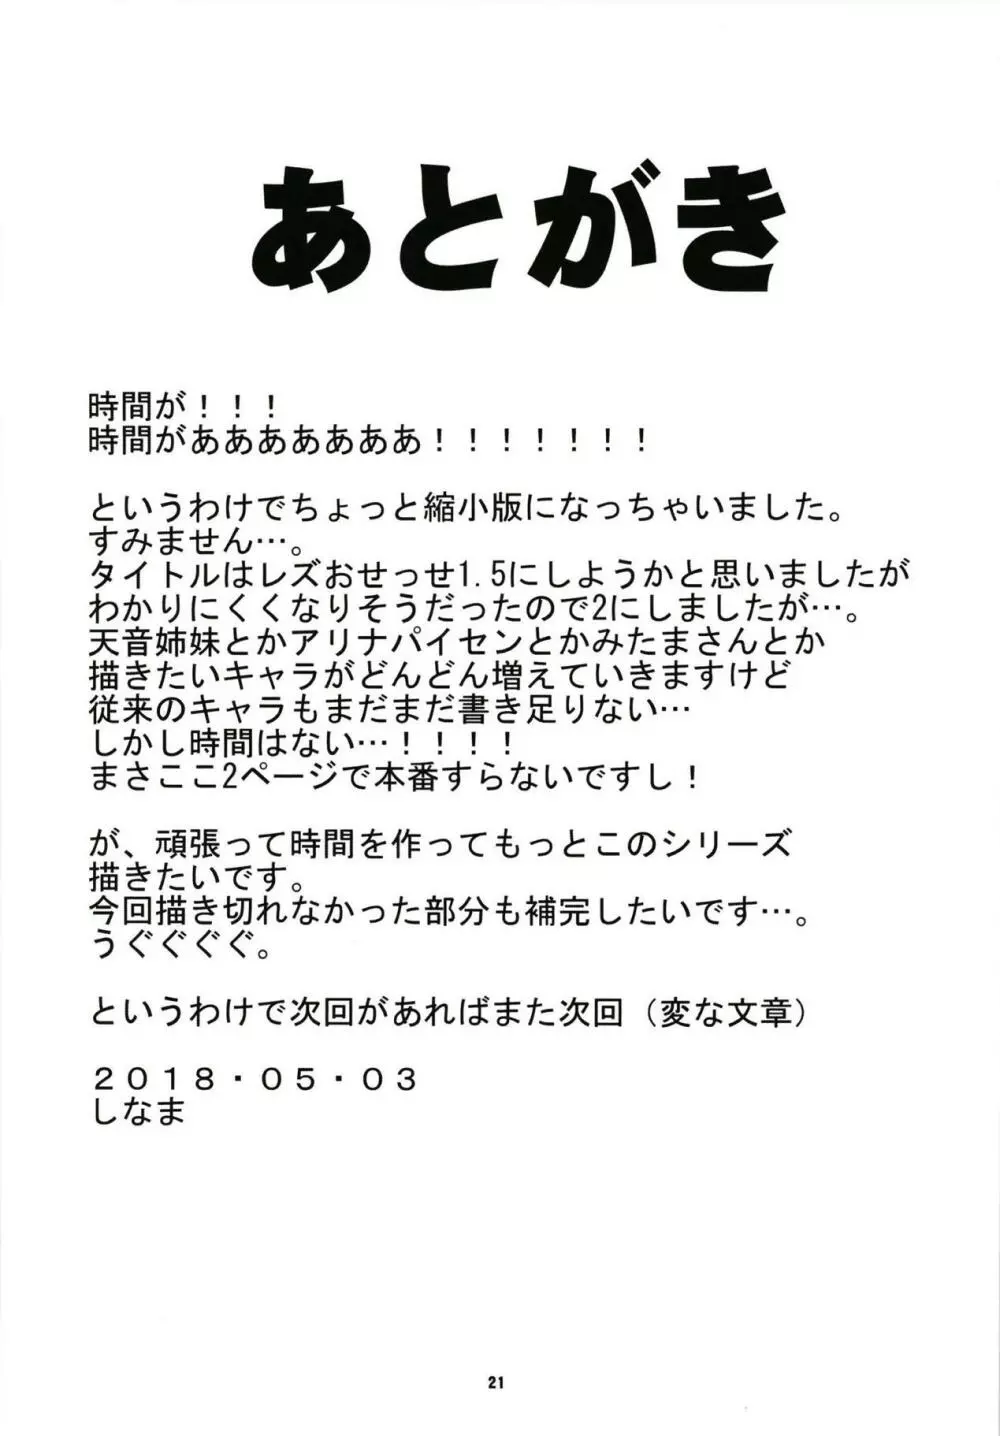 あとがき
時間が！！！
時間がああああああああ！！！！！！！
というわけでちょっと縮小版になっちゃいました。
すみません…。
タイトルはレズおせっせ1.5にしようかと思いましたが
わかりにくくなりそうだったので2にしましたが…。
天音姉妹とかアリナパイセンとかみたまさんとか
描きたいキャラがどんどん増えていきますけど
従来のキャラもまだまだ書き足りない…
しかし時間はない…！！！！
まさここ2ページで本番すらないですし！
が、頑張って時間を作ってもっとこのシリーズ
描きたいです。
今回描き切れなかった部分も補完したいです…。
うぐぐぐぐ。
というわけで次回があればまた次回（変な文章）
２０１８・０５・０３
しなま
21